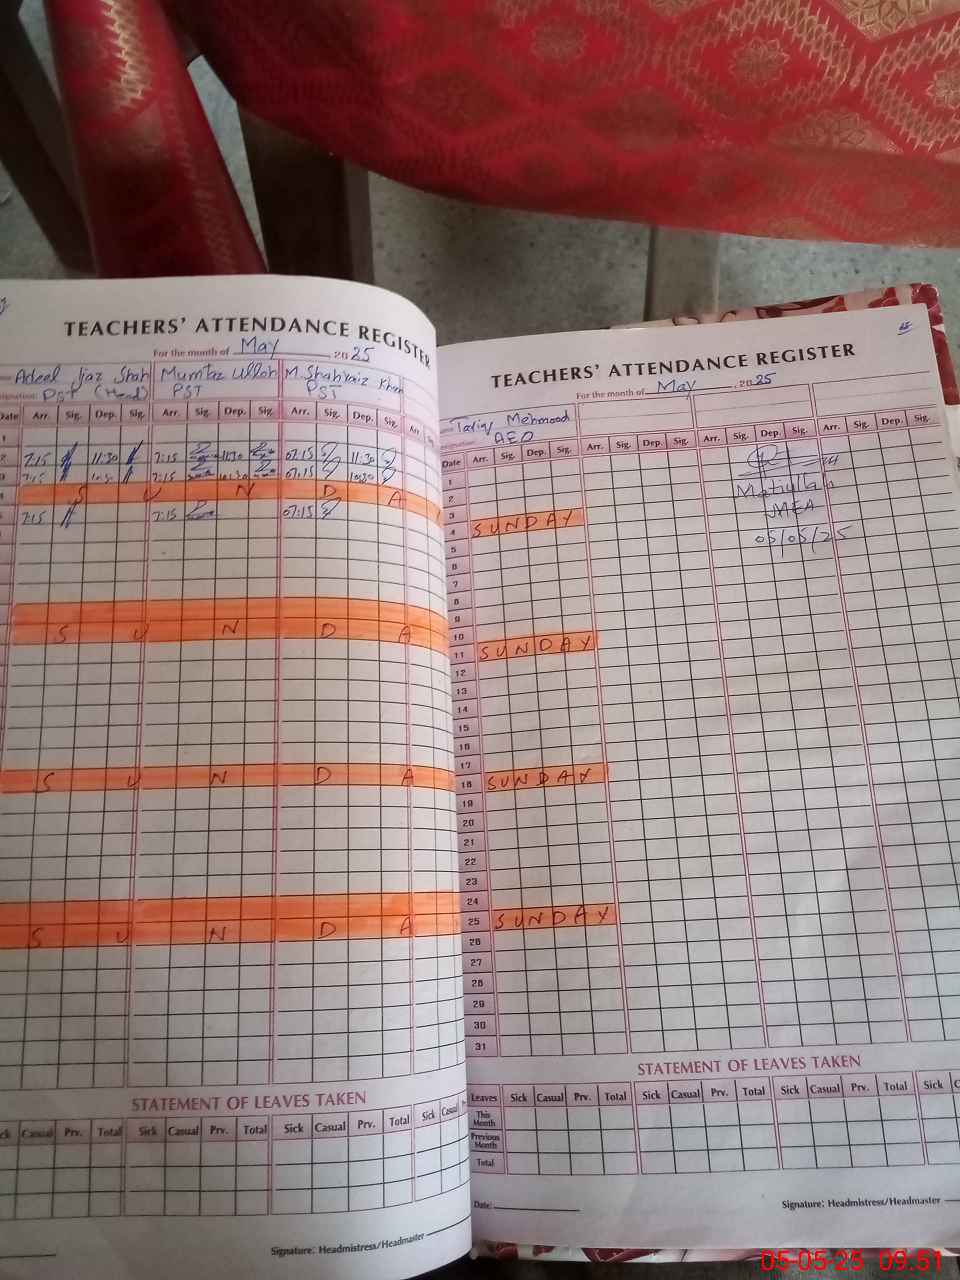 TEACHERS' ATTENDANCE REGISTER
For the month of May 2025
Adeel Ijaz Shah Mumtaz Ullah M. Shahraiz Khan
PST (Head) PST PST
Date Arr. Sig. Dep. Sig. Arr. Sig. Dep. Sig. Arr. Sig. Dep. Sig. Arr.
7:15 11:30 7:15 11:30 07:15 11:30
7:15 10:30 7:15 10:30 07:15 10:30
S U N D A
7:15 7:15 07:15
S U N D A
S U N D A
S U N D A
STATEMENT OF LEAVES TAKEN
Casual Prv. Total Sick Casual Prv. Total Sick Casual Prv. Total Sick Casual
Signature: Headmistress/Headmaster
TEACHERS' ATTENDANCE REGISTER
For the month of May 2025
Tariq Mehmood
AEO
Date Arr. Sig. Dep. Sig. Arr. Sig. Dep. Sig. Arr. Sig. Dep. Sig. Arr. Sig. Dep. Sig.
1
2
Matiullah
3
MEA
4 SUNDAY
05/05/25
5
6
7
8
9
10
11 SUNDAY
12
13
14
15
16
17
18 SUNDAY
19
20
21
22
23
24
25 SUNDAY
26
27
28
29
30
31
STATEMENT OF LEAVES TAKEN
Leaves Sick Casual Prv. Total Sick Casual Prv. Total Sick Casual Prv. Total Sick
This Month
Previous Month
Total
Date:
Signature: Headmistress/Headmaster
05-05-25 09:51